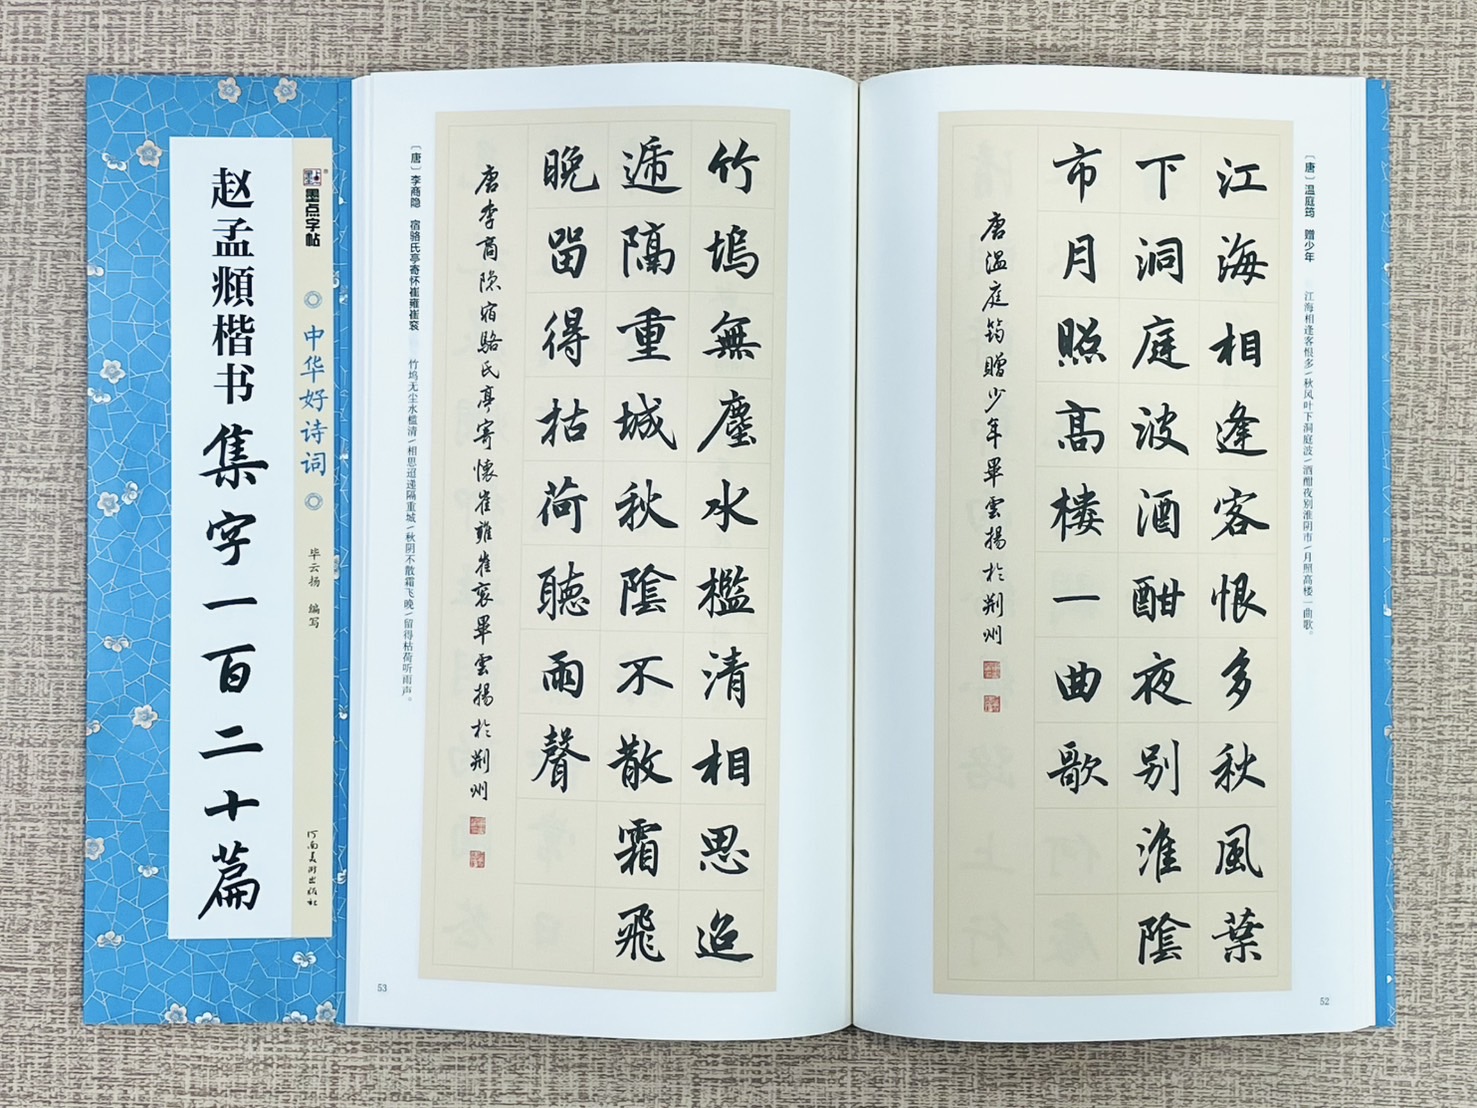 〔唐〕温庭筠 赠少年 江海相逢客恨多/秋风叶下洞庭波/酒酣夜别淮阴市/月照高楼一曲歌。
江海相逢客恨多秋風葉
下洞庭波酒酣夜别淮陰
市月照高楼一曲歌
唐温庭筠贈少年畢雲揚於荆州
52
竹塢無塵水檻清相思迢
遞隔重城秋陰不散霜飛
晚留得枯荷聽雨聲
唐李商隱宿駱氏亭寄懷崔雍崔衮畢雲揚於荆州
〔唐〕李商隐 宿骆氏亭寄怀崔雍崔衮 竹坞无尘水槛清/相思迢递隔重城/秋阴不散霜飞晚/留得枯荷听雨声。
53
墨点字帖
中华好诗词
毕云扬 编写
河南美术出版社
赵孟頫楷书集字一百二十篇